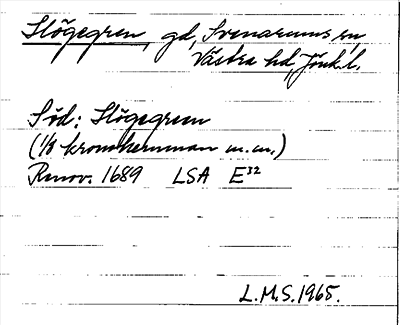 Slögegren, gd, Svenarums sn,
Västra hd, Jönk.l.
Söd: Slögegreen
(1/8 kronohemman m.m.)
Renov. 1689 LSA E³²
L.M.S. 1965.